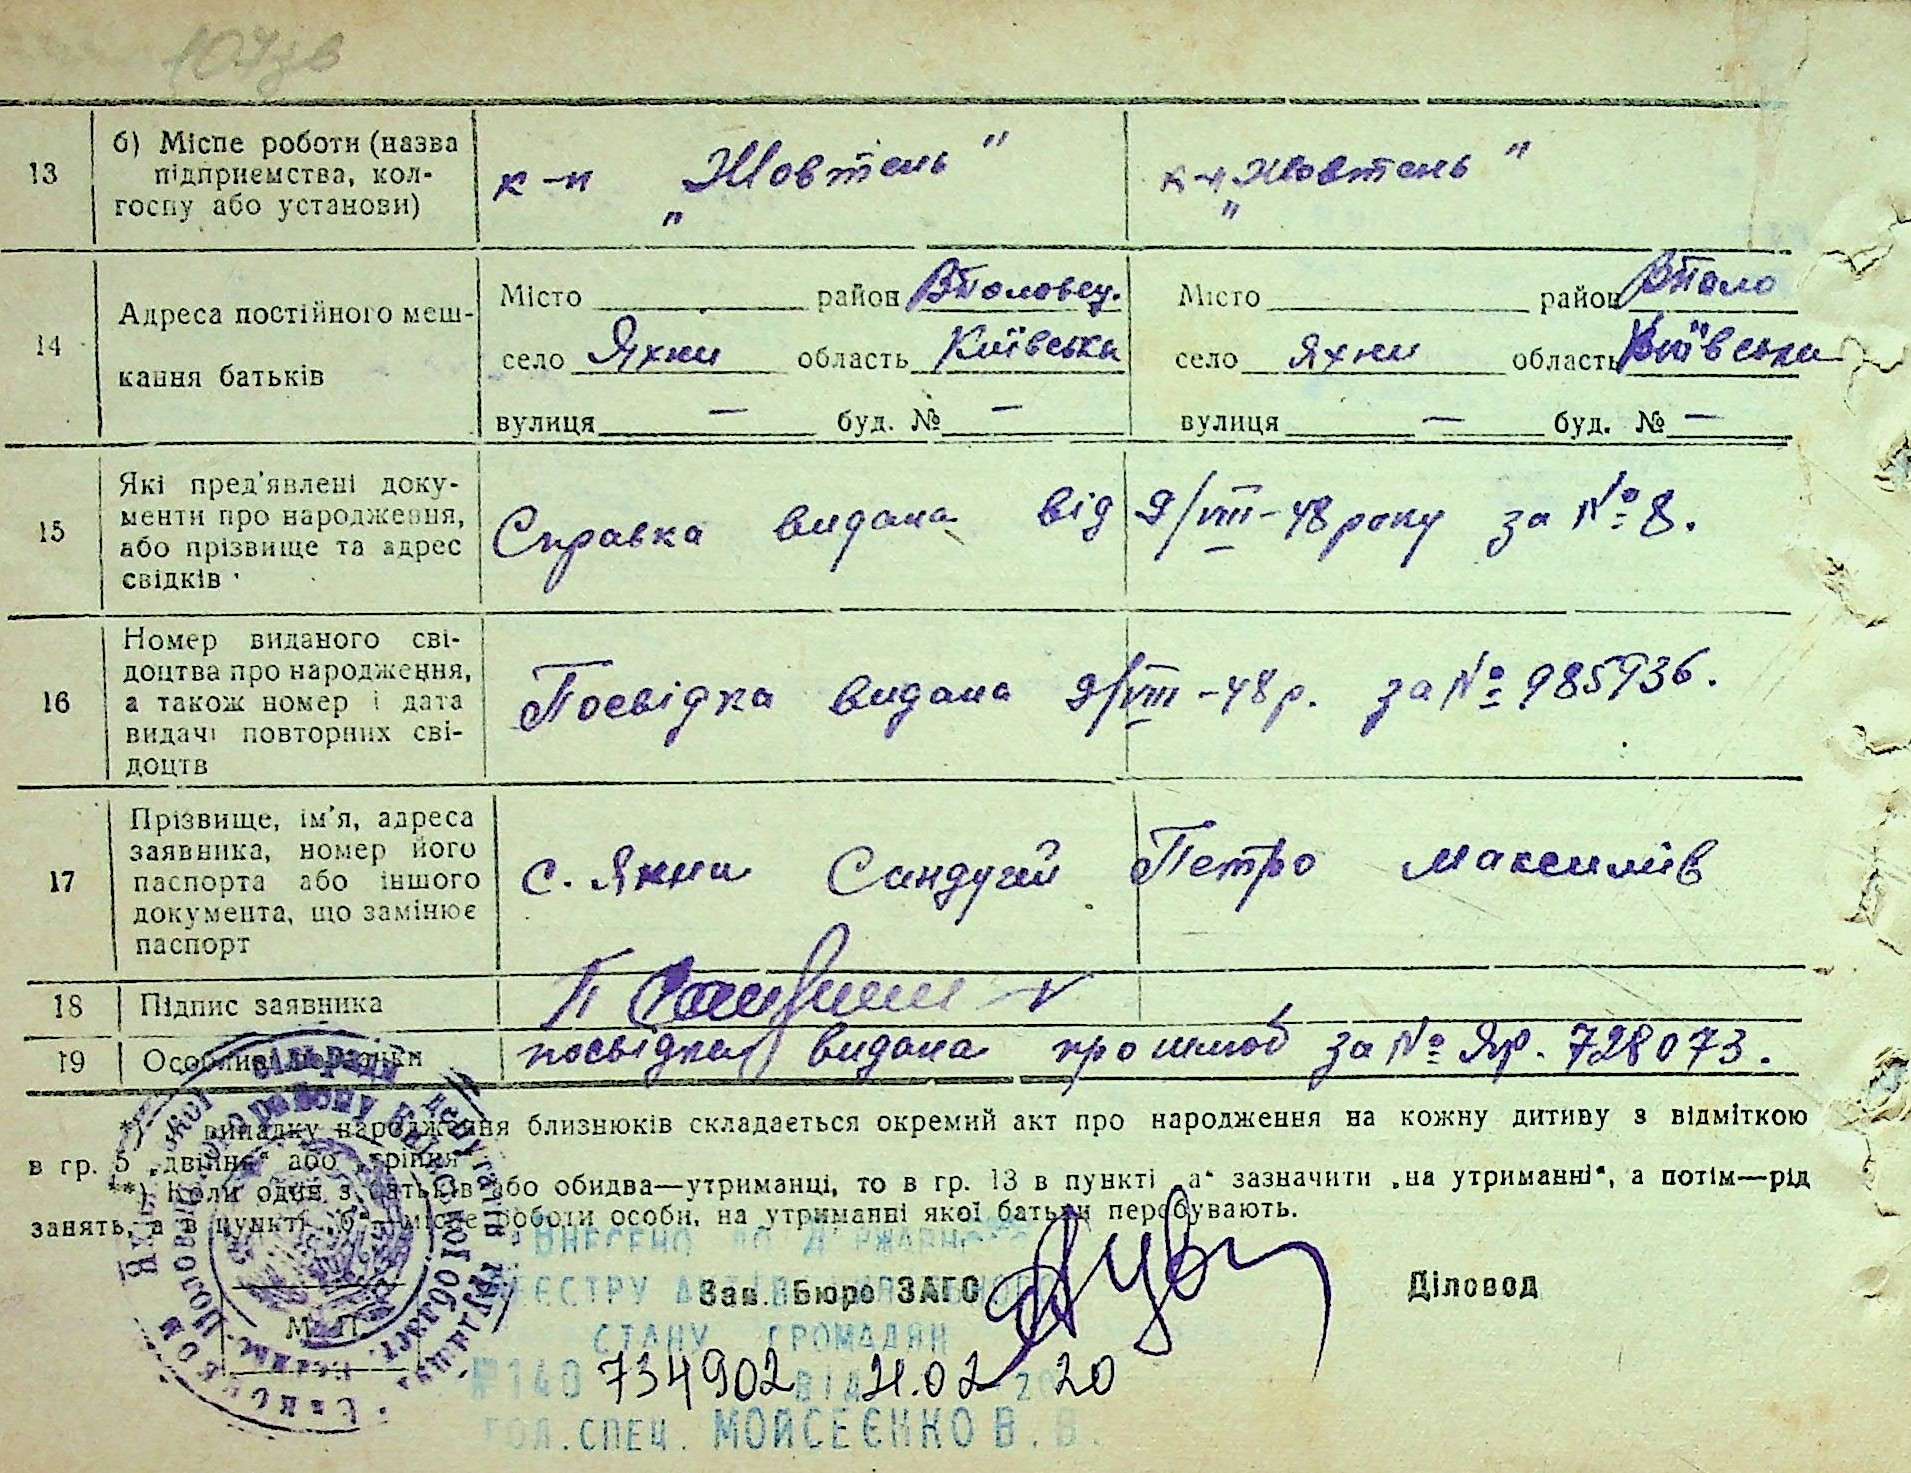 107зв
13 б) Місце роботи (назва підприємства, кол-
госпу або установи)
к-п „Жовтень" к-п „Жовтень"
14 Адреса постійного меш-
кання батьків
Місто район Вполовец. Місто район Вполо
село Яхни область Київська село Яхни область Київська
вулиця — буд. № — вулиця — буд. № —
15 Які пред'явлені доку-
менти про народження,
або прізвище та адрес
свідків
Справка видана від 9/VIII-48 року за № 8.
16 Номер виданого сві-
доцтва про народження,
а також номер і дата
видачі повторних сві-
доцтв
Посвідка видана 9/VIII-48 р. за № 985936.
17 Прізвище, ім'я, адреса
заявника, номер його
паспорта або іншого
документа, що замінює
паспорт
с. Яхни Сандугий Петро Максимів
18 Підпис заявника
19 Особливі
посвідка видана про шлюб за № Яр. 728073.
*) випадку народження близнюків складається окремий акт про народження на кожну дитину з відміткою
в гр. 5 „двійня" або „трійня"
**) Коли один з батьків або обидва—утриманці, то в гр. 13 в пункті „а" зазначити „на утриманні", а потім—рід
занять, а в пункті „б" місце роботи особи, на утриманні якої батьки перебувають.
ВНЕСЕНО ДО ДЕРЖАВНОГО
РЕЄСТРУ АКТІВ ЦИВІЛЬНОГО
Зав. Бюро ЗАГС Діловод
СТАНУ ГРОМАДЯН
М. П.
№ 140 734902 ВІД 21.02 20 20
ГОЛ.СПЕЦ. МОЙСЕЄНКО В.В.